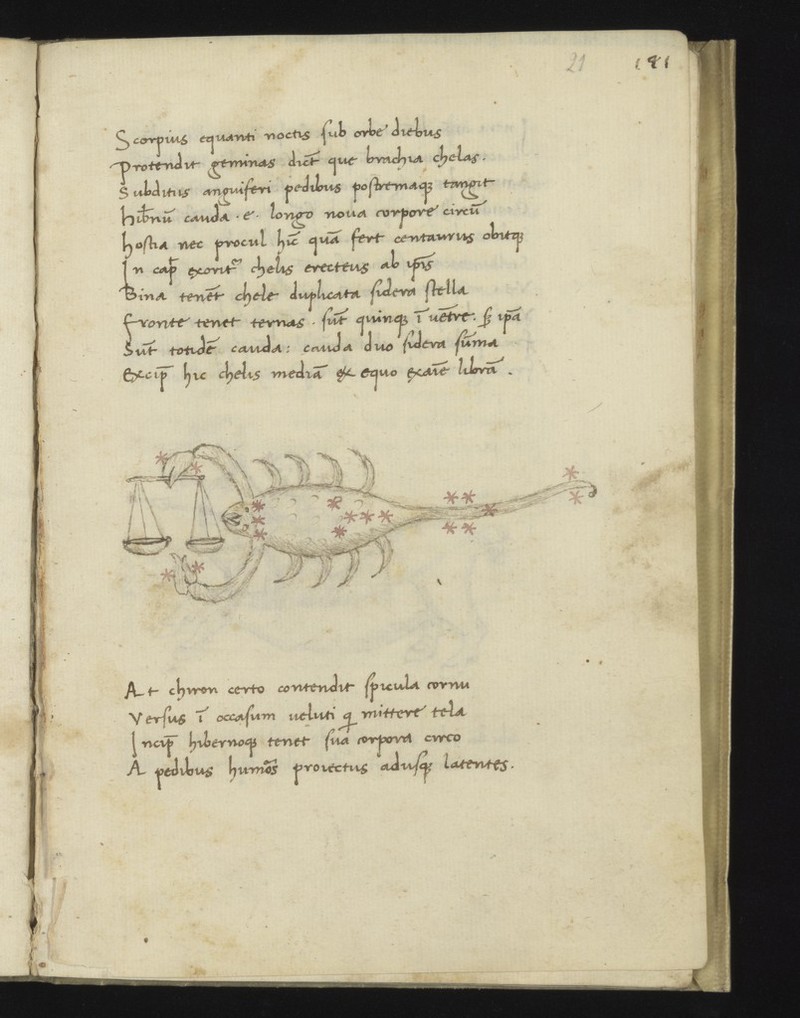 21 181
Scorpius equanti noctis sub orbe diebus
Protendit geminas dict̄ que brachia chelas.
Subditus anguiferi pedibus postremaqꝫ tangit
hib̄nū cauda · e · longo noua corpore circū
hostia nec procul hic̄ quā fert centaurus obitqꝫ
In cap̄ exorit̉ chelis erecteus ab ip̄is
Bina tenēt chele duplicata sidera stella
fronte tenet ternas · sūt quinqꝫ ī uētre · ꝫ ip̄a
Sūt totidē cauda : cauda duo sidera sūma
Excip̄ hic chelis mediā ex equo exāīe librā .
At chiron certo contendit spicula cornu
Versus ī occasum ueluti q̄ mittere tela
Incip̄ hibernoqꝫ tenet sua corpora circo
A pedibus humōs proiectus adusqꝫ latentes .